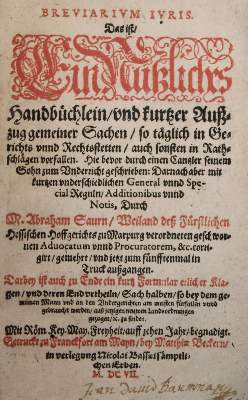 BREVIARIVM IVRIS.
Das ist/
Ein Nützlichs
Handbüchlein/vnd kurtzer Auß-
zug gemeiner Sachen/ so täglich in Ge-
richts vnnd Rechtsstetten/ auch sonsten in Rath-
schlägen vorfallen. Hie bevor durch einen Cantzler seinem
Sohn zum Vnderricht geschrieben: Darnach aber mit
kurtzen vnderschiedlichen General vnnd Spe-
cial Reguln/ Additionibus vnnd
Notis, Durch
M. Abraham Saurn/ Weiland deß Fürstlichen
Hessischen Hoffgerichts zu Marpurg verordneten gesch wor-
nen Aduocatum vnnd Procuratorem, &c. corri-
girt/ gemehrt/ vnd jetzt zum fünfftenmal in
Truck außgangen.
Darbey ist auch zu Ende ein kurtz Formular etlicher Kla-
gen/ vnd deren End vrtheiln/ Sach halben/ so bey dem ge-
meinen Mann vnd an den Vndergerichten am meisten fürfallen vnnd
gebraucht werden/ auß jetziger newen Landtsordnungen
gezogen/ &c. zu finden.
Mit Röm. Key. May. Freyheit/ auff zehen Jahr/ begnadigt.
Getruckt zu Franckfort am Mayn/ bey Matthis Beckern/
in verlegung Nicolai Bassaei sampelichen Erben.
M. DC VII.
Joan David Baumman